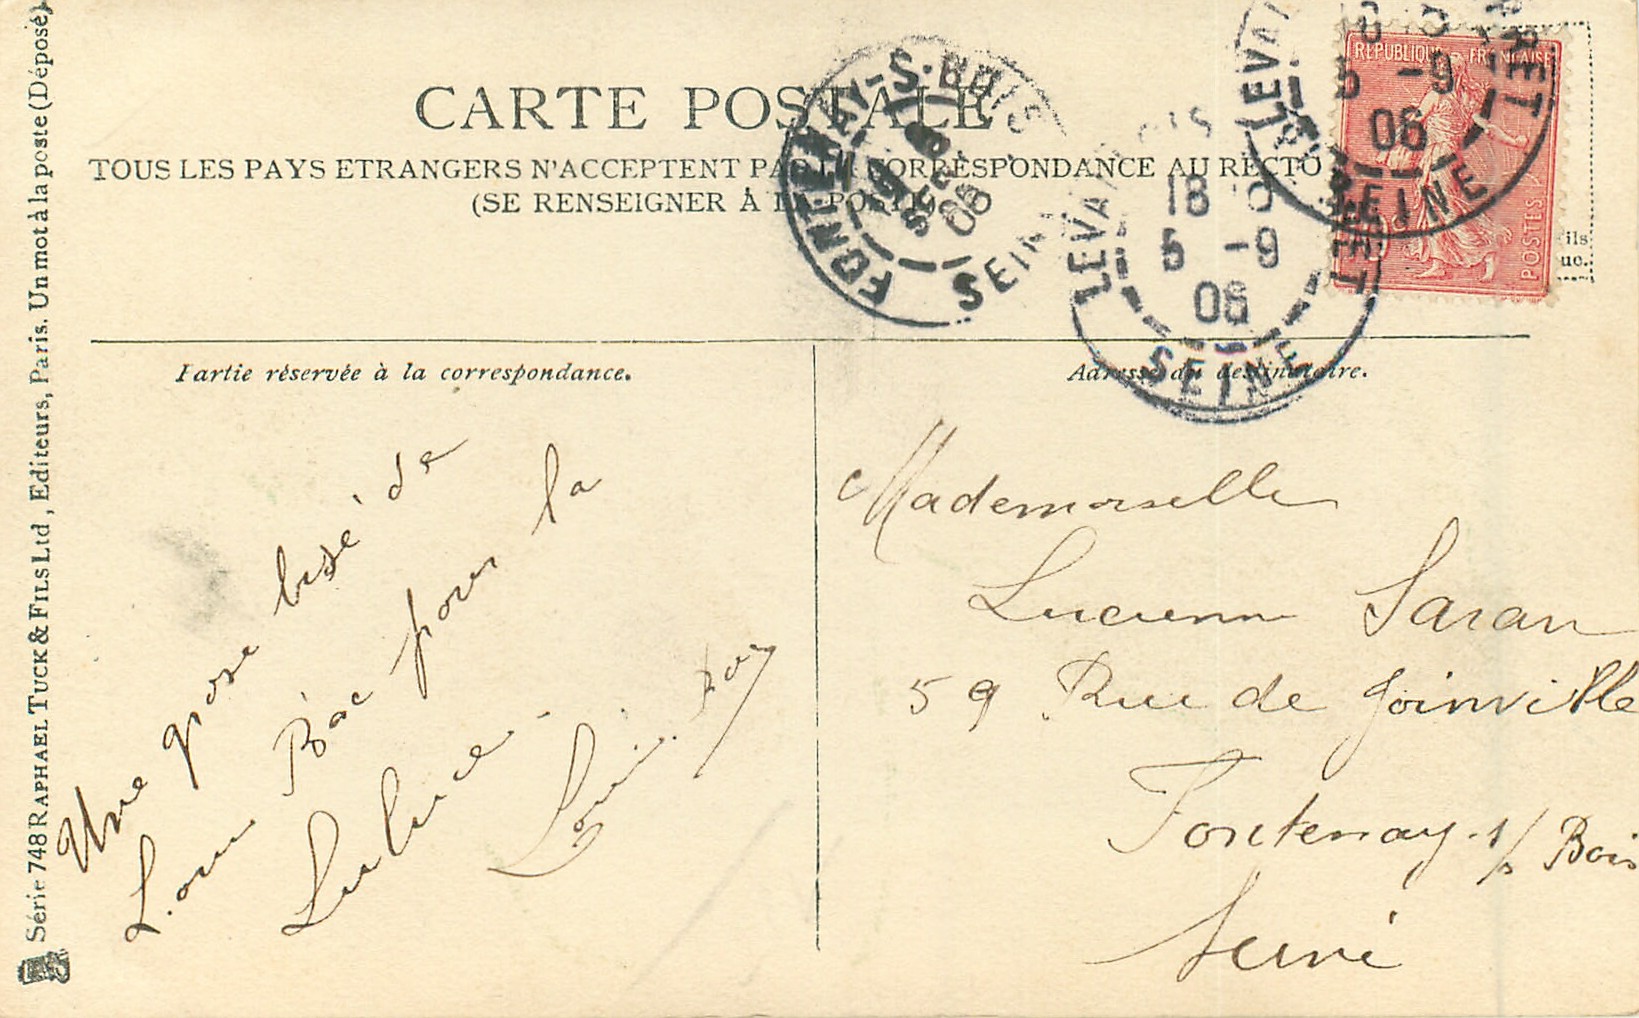 CARTE POSTALE
TOUS LES PAYS ETRANGERS N'ACCEPTENT PAS LA CORRESPONDANCE AU RECTO
(SE RENSEIGNER À LA POSTE)
Partie réservée à la correspondance.
Adresse du destinataire.
Série 748 RAPHAEL TUCK & FILS Ltd, Editeurs, Paris. Un mot à la poste (Déposé)
FONTENAY-S-BOIS
SEINE
06
LEVALLOIS
18
5 -9
06
SEINE
LEVA RET
5 -9
06
SEINE
REPUBLIQUE FRANÇAISE
POSTES
ils
Une pose
de
Bac pour la
Luluce.
Mademoiselle
Lucienn Saran
59 Rue de Joinville
Fontenay s/s Bois
Seine